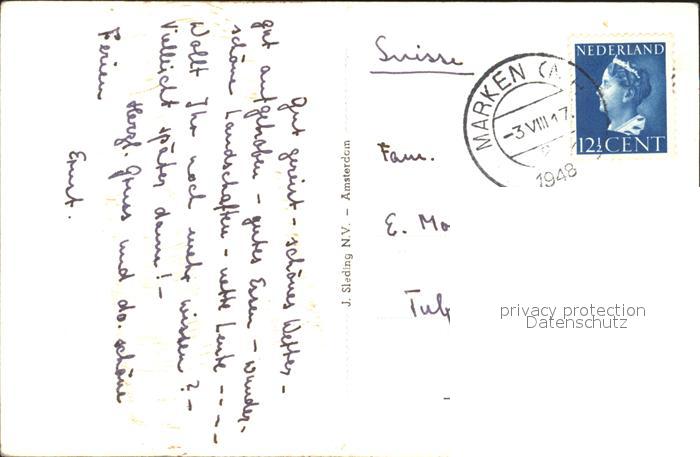 Gut gereist - schönes Wetter -
gut aufgehoben - gutes Essen - wunder-
schöne Landschaften - nette Leute - - - -
Wollt Ihr noch mehr wissen? -
Vielleicht später dann! -
Herzl. Gruss und do. schöne
Ferien
Ernst.
J. Sleding N.V. - Amsterdam
Suisse
MARKEN (
-3 VIII 17
1948
NEDERLAND
12½ CENT
Fam.
E. Mo
Tulp
privacy protection
Datenschutz